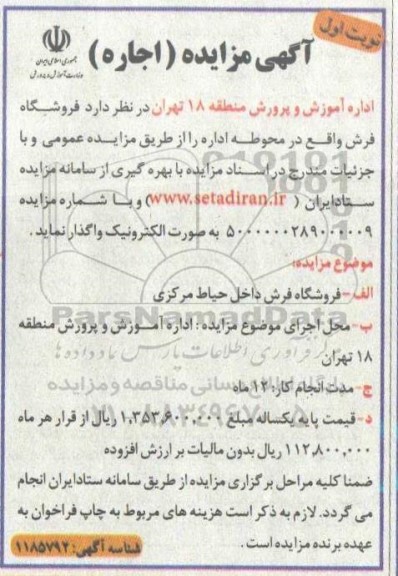 نوبت اول
جمهوری اسلامی ایران
وزارت آموزش و پرورش
آگهی مزایده (اجاره)
اداره آموزش و پرورش منطقه ۱۸ تهران در نظر دارد فروشگاه
فرش واقع در محوطه اداره را از طریق مزایده عمومی و با
جزئیات مندرج در اسناد مزایده با بهره گیری از سامانه مزایده
ستادایران (www.setadiran.ir) و با شماره مزایده
۵۰۰۰۰۰۰۲۸۹۰۰۰۰۰۹ به صورت الکترونیک واگذار نماید.
موضوع مزایده:
الف- فروشگاه فرش داخل حیاط مرکزی
ParsNamadData
ب- محل اجرای موضوع مزایده: اداره آموزش و پرورش منطقه
۱۸ تهران
ج- مدت انجام کار: ۱۲ ماه
د- قیمت پایه یکساله مبلغ ۱,۳۵۳,۶۰۰,۰۰۰ ریال از قرار هر ماه
۱۱۲,۸۰۰,۰۰۰ ریال بدون مالیات بر ارزش افزوده
ضمنا کلیه مراحل برگزاری مزایده از طریق سامانه ستادایران انجام
می گردد. لازم به ذکر است هزینه های مربوط به چاپ فراخوان به
عهده برنده مزایده است.
شناسه آگهی: ۱۱۸۵۷۹۲